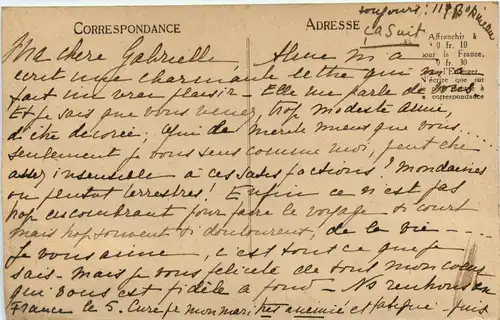 toujours : 11 Bd
CORRESPONDANCE
ADRESSE
La Suit
Affranchir à
0 fr. 10
pour la France.
0 fr. 30
pour l'Étranger
N'écrire que sur
la correspondance
Ma chère Gabrielle, Aline m'a
écrit une charmante lettre qui m'a
fait un vrai plaisir — Elle me parle de vous
Et je sais que vous venez, trop modeste amie,
d'être décorée; qui le mérite mieux que vous...
seulement je vous sens comme moi, peut être
assez insensible à ces satisfactions! Mondaines
ou plutôt terrestres! Enfin ce n'est pas
trop encombrant pour faire le voyage si court
mais trop souvent si douloureux, de la vie ---
Je vous aime, c'est tout ce que je
sais — Mais je vous félicite de tout mon cœur
qui vous est fidèle à fond — Ns rentrons en
France le 5. Cure pr mon mari très anémié et fatigué — puis